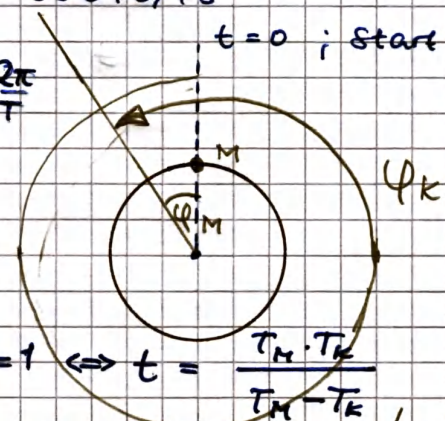 t = 0 ; start
2π
T
M
φ_K
φ_M
=1 ⟺ t = T_M · T_K / T_M − T_K